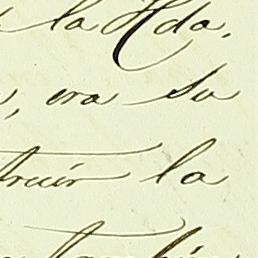 la Hda.
, era su
truir la
también